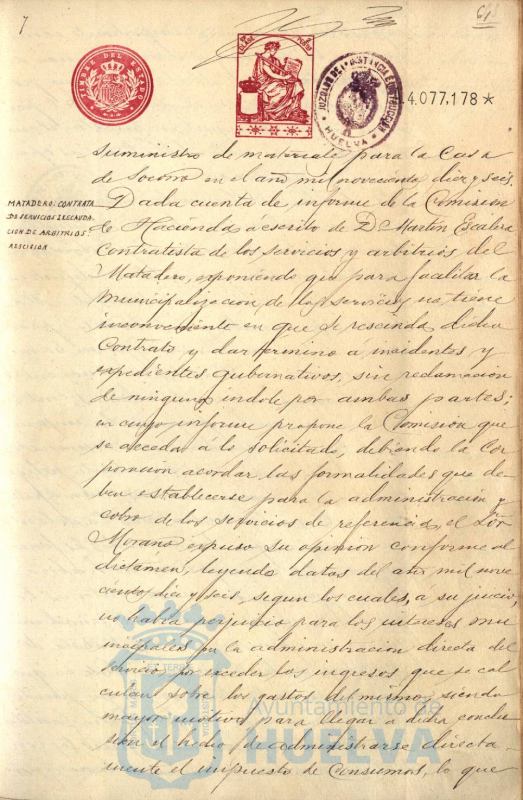 7
TIMBRE DEL ESTADO
JUZGADO DE 1ª INSTANCIA E INSTRUCCION
HUELVA
4.077.178 *
suministro de materiale para la Casa
de Socorro en el año mil novecientos diez y seis.
MATADERO: CONTRATA
DE SERVICIOS I RECAUDA
CION DE ARBITRIOS.
RESCISION
Dada cuenta de informe de la Comision
de Hacienda á escrito de D. Martin Escalera
Contratista de los servicios y arbitrios del
Matadero, exponiendo que para facilitar la
municipalizacion de los servicios no tiene
inconveniente en que se rescinda dicho
Contrato y dar termino á incidentes y
expedientes gubernativos, sin reclamacion
de ninguna indole por ambas partes;
en cuyo informe propone la Comisión que
se acceda á lo solicitado, debiendo la Cor
poracion acordar las formalidades que de-
ben establecerse para la administracion y
cobro de los servicios de referencia, el Sor
Morano expuso su opinion conforme al
dictamen, leyendo datos del año mil nove
cientos diez y seis, segun los cuales, a su juicio,
no habia perjuicio para los intereses mu
nicipales en la administracion directa del
servicio, por exceder los ingresos que se cal
culan sobre los gastos del mismo, siendo
mayor motivo para llegar a dicha conclu
sion el hecho de administrarse directa-
mente el impuesto de Consumos, lo que
Ayuntamiento de
HUELVA